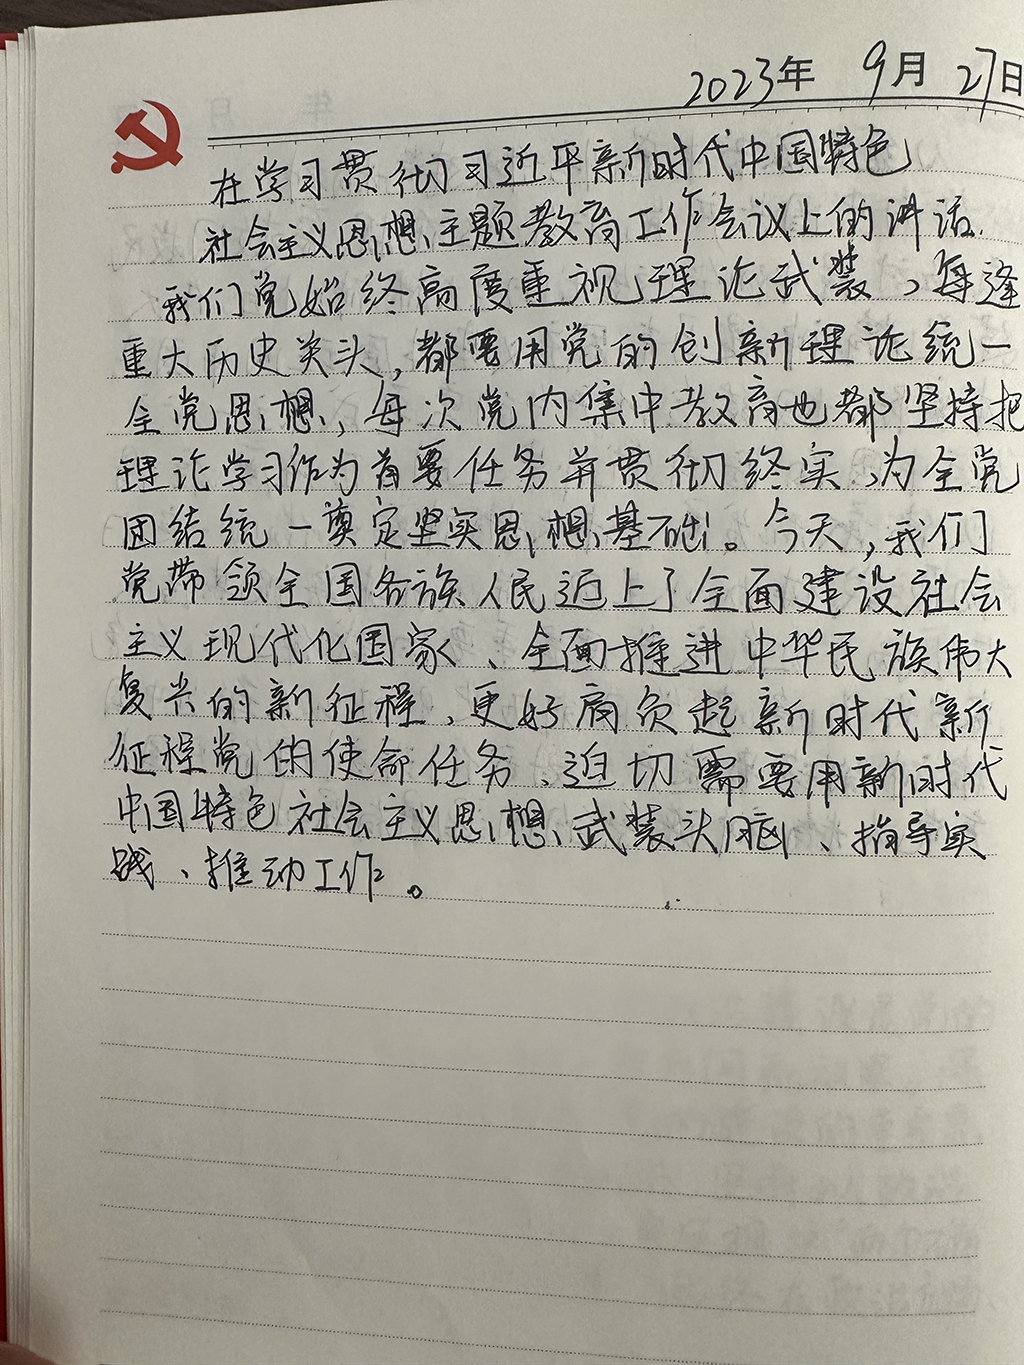 2023年 9月 27日
在学习贯彻习近平新时代中国特色
社会主义思想主题教育工作会议上的讲话.
我们党始终高度重视理论武装，每逢
重大历史关头，都要用党的创新理论统一
全党思想，每次党内集中教育也都坚持把
理论学习作为首要任务并贯彻终实，为全党
团结统一奠定坚实思想基础。今天，我们
党带领全国各族人民迈上了全面建设社会
主义现代化国家、全面推进中华民族伟大
复兴的新征程，更好肩负起新时代新
征程党的使命任务，迫切需要用新时代
中国特色社会主义思想武装头脑、指导实
践、推动工作。